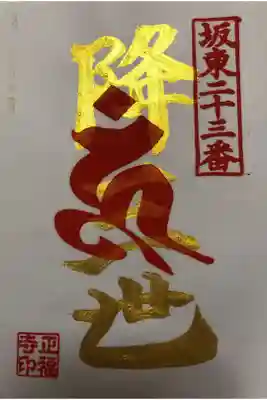 坂東二十三番
降
世
正福
寺印